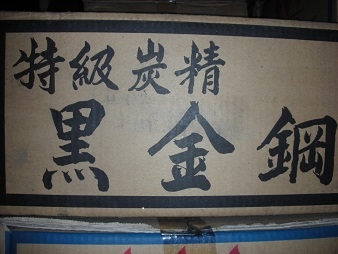 特級炭精
黒金鋼